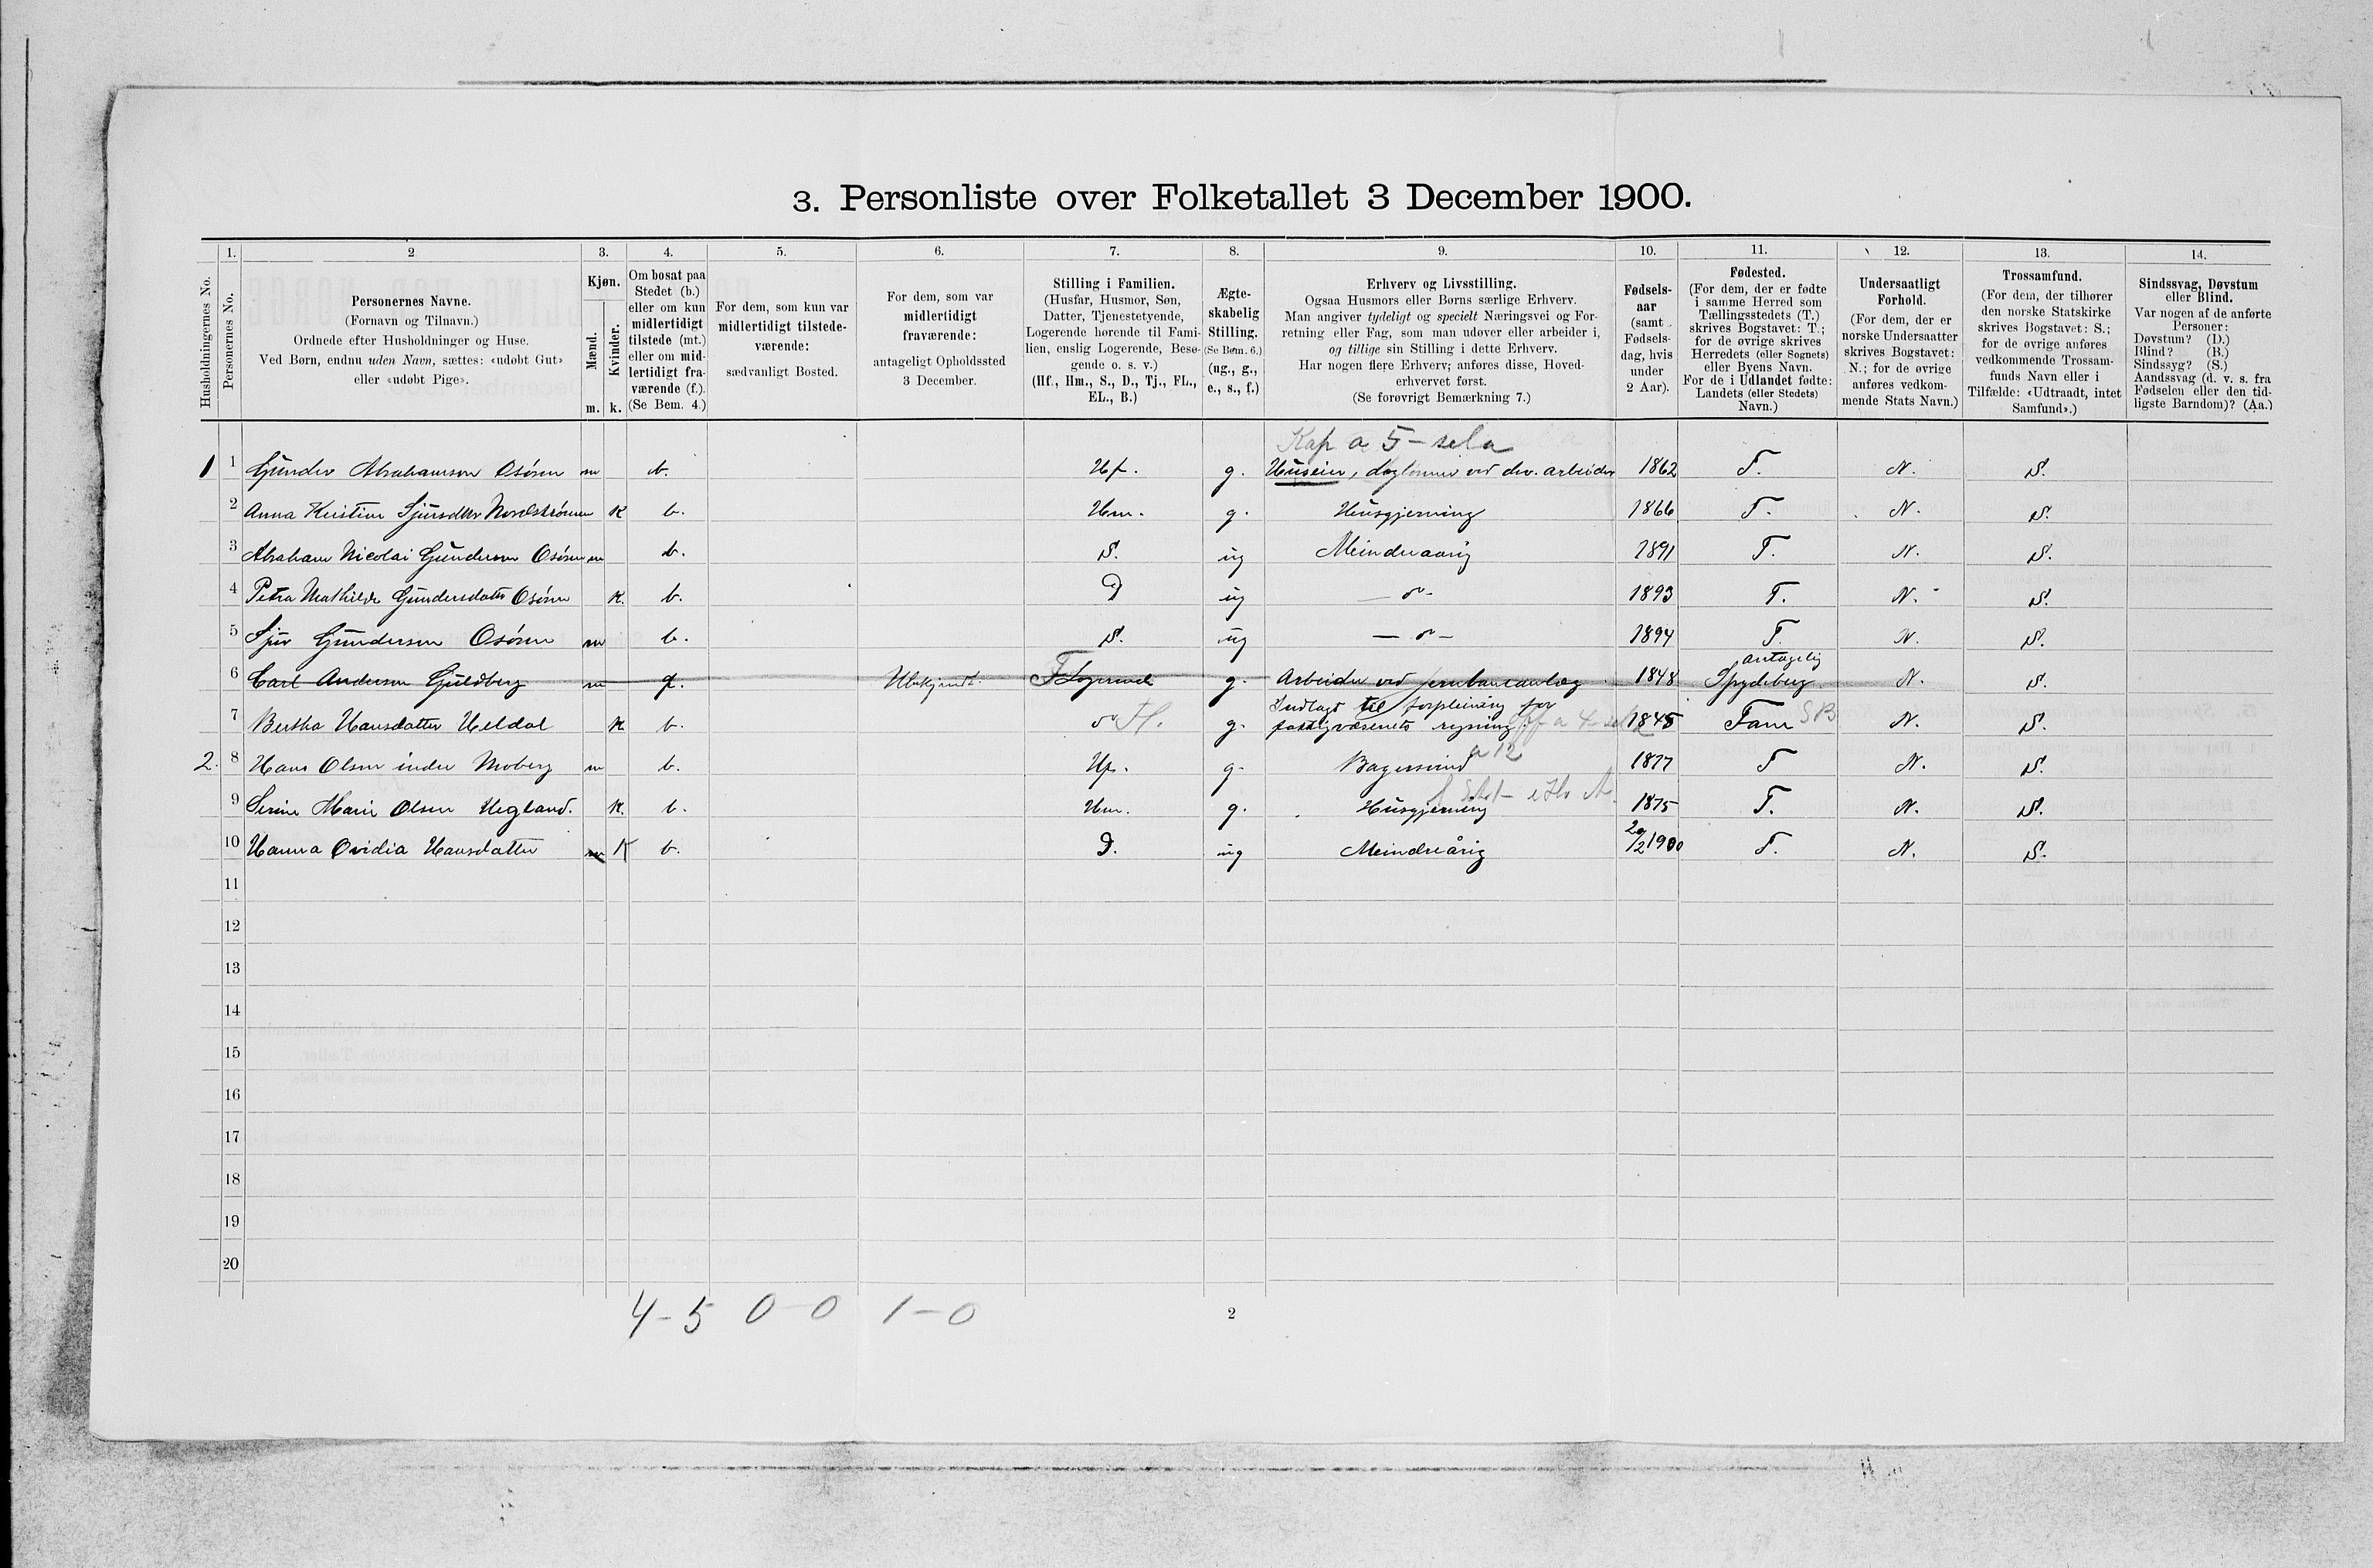 3. Personliste over Folketallet 3 December 1900.
1. 2 3. 4. 5. 6. 7. 8. 9. 10. 11. 12. 13. 14.
Husholdningernes No.
Personernes No.
Personernes Navne.
(Fornavn og Tilnavn.)
Ordnede efter Husholdninger og Huse.
Ved Børn, endnu uden Navn, sættes: «udøbt Gut»
eller «udøbt Pige».
Kjøn.
Mænd.
Kvinder.
m. k.
Om bosat paa
Stedet (b.)
eller om kun
midlertidigt
tilstede (mt.)
eller om mid-
lertidigt fra-
værende (f.)
(Se Bem. 4.)
For dem, som kun var
midlertidigt tilstede-
værende:
sædvanligt Bosted.
For dem, som var
midlertidigt
fraværende:
antageligt Opholdssted
3 December.
Stilling i Familien.
(Husfar, Husmor, Søn,
Datter, Tjenestetyende,
Logerende hørende til Fami-
lien, enslig Logerende, Besø-
gende o. s. v.)
(Hf., Hm., S., D., Tj., FL.,
EL., B.)
Ægte-
skabelig
Stilling.
(Se Bem. 6.)
(ug., g.,
e., s., f.)
Erhverv og Livsstilling.
Ogsaa Husmors eller Børns særlige Erhverv.
Man angiver tydeligt og specielt Næringsvei og For-
retning eller Fag, som man udøver eller arbeider i,
og tillige sin Stilling i dette Erhverv.
Har nogen flere Erhverv; anføres disse, Hoved-
erhvervet først.
(Se forøvrigt Bemærkning 7.)
Fødsels-
aar
(samt
Fødsels-
dag, hvis
under
2 Aar).
Fødested.
(For dem, der er fødte
i samme Herred som
Tællingsstedets (T.)
skrives Bogstavet: T.;
for de øvrige skrives
Herredets (eller Sognets)
eller Byens Navn.
For de i Udlandet fødte:
Landets (eller Stedets)
Navn.)
Undersaatligt
Forhold.
(For dem, der er
norske Undersaatter
skrives Bogstavet:
N.; for de øvrige
anføres vedkom-
mende Stats Navn.)
Trossamfund.
(For dem, der tilhører
den norske Statskirke
skrives Bogstavet: S.;
for de øvrige anføres
vedkommende Trossam-
funds Navn eller i
Tilfælde: «Udtraadt, intet
Samfund».)
Sindssvag, Døvstum
eller Blind.
Var nogen af de anførte
Personer:
Døvstum? (D.)
Blind? (B.)
Sindssyg? (S.)
Aandssvag (d. v. s. fra
Fødselen eller den tid-
ligste Barndom)? (Aa.)
Kap a 5 - sela
1 1 Gunder Abrahamson Osøren m b. Hf. g. Huseier, daglønner ved div. arbeider 1862 T. N. S.
2 Anna Kristine Sjursdtr Nordstrønen k b. Hm. g. Husgjerning 1866 T. N. S.
3 Abraham Nicolai Gundersen Osøren m b. S. ug Meindreaarig 1891 T. N. S.
4 Petra Mathilde Gundersdatter Osøren k. b. D ug — " - 1893 T. N. S.
5 Sjur Gundersen Osøren m b. S. ug — " — 1894 T. N. S.
antagelig
6 Carl Andersen Guldberg m f. Ubekjendt. F Logerende g. Arbeider ved jernbaneanlæg 1848 Spydeberg N. S.
Indlagt til forpleining for
7 Bertha Hansdatter Heldal k b. " g. fattigvæsenets regning 1845 Fane SB N. S.
a 12
2. 8 Hans Olsen indre Moberg m b. Hf. g. Bagersvend 1877 T N. S.
9 Serine Marie Olsen Hegland. k. b. Hm. g. Husgjerning 1875 T. N. S.
10 Hanna Ovidia Hansdatter m K b. D. ug Meindreårig 20/2 1900 T. N. S.
11
12
13
14
15
16
17
18
19
20
4-5 0-0 1-0
2